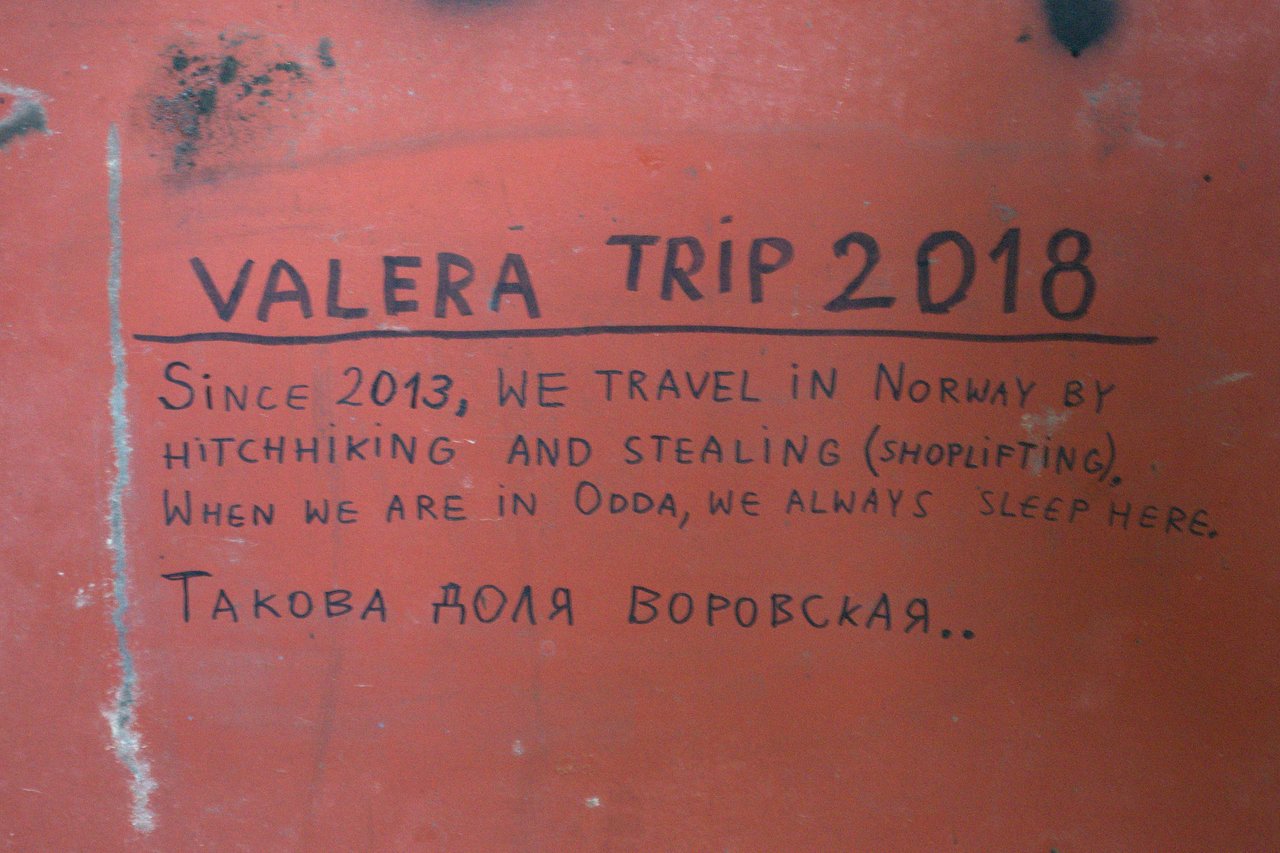 VALERA TRIP 2018
SINCE 2013, WE TRAVEL IN NORWAY BY
HITCHHIKING AND STEALING (SHOPLIFTING).
WHEN WE ARE IN ODDA, WE ALWAYS SLEEP HERE.
ТАКОВА ДОЛЯ ВОРОВСКАЯ..